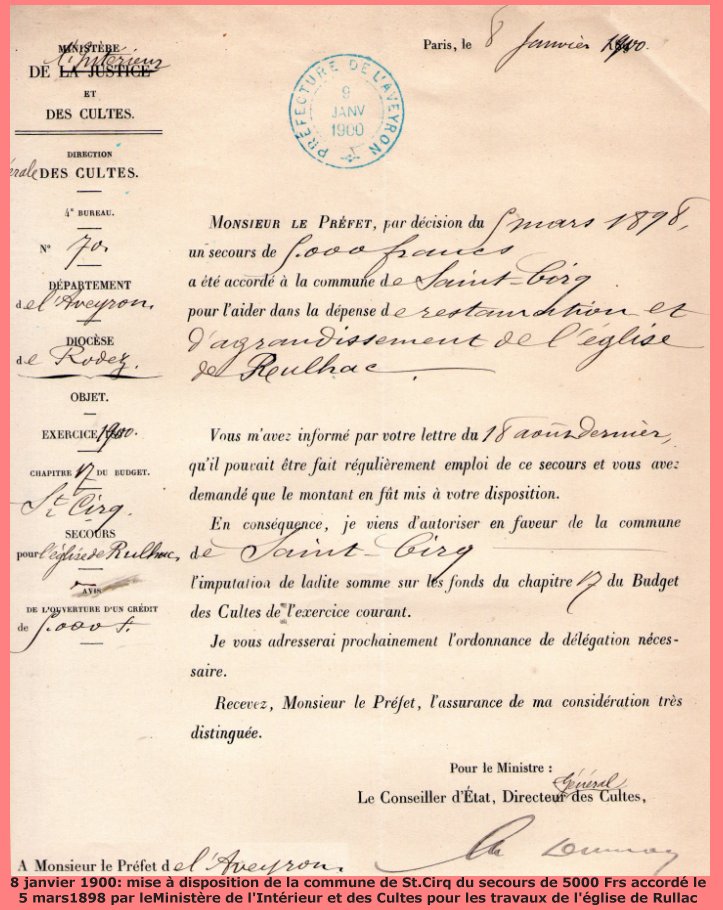 MINISTÈRE
l'Intérieur
DE LA JUSTICE
ET
DES CULTES.
DIRECTION
érale DES CULTES.
4e BUREAU.
N° 70.
DÉPARTEMENT
de l'Aveyron.
DIOCÈSE
de Rodez.
OBJET.
EXERCICE 1900.
CHAPITRE 17 DU BUDGET.
St Cirq.
SECOURS
pour l'église de Rulhac.
AVIS
DE L'OUVERTURE D'UN CRÉDIT
de 5.000 f.
Paris, le 8 Janvier 1900.
PRÉFECTURE DE L'AVEYRON
9
JANV
1900
MONSIEUR LE PRÉFET, par décision du 5 mars 1898,
un secours de 5.000 francs
a été accordé à la commune de Saint-Cirq
pour l'aider dans la dépense de restauration et
d'agrandissement de l'église
de Rulhac.
Vous m'avez informé par votre lettre du 18 août dernier,
qu'il pouvait être fait régulièrement emploi de ce secours et vous avez
demandé que le montant en fût mis à votre disposition.
En conséquence, je viens d'autoriser en faveur de la commune
de Saint-Cirq
l'imputation de ladite somme sur les fonds du chapitre 17 du Budget
des Cultes de l'exercice courant.
Je vous adresserai prochainement l'ordonnance de délégation néces-
saire.
Recevez, Monsieur le Préfet, l'assurance de ma considération très
distinguée.
Pour le Ministre :
Général
Le Conseiller d'État, Directeur des Cultes,
A Monsieur le Préfet de l'Aveyron.
8 janvier 1900: mise à disposition de la commune de St.Cirq du secours de 5000 Frs accordé le
5 mars1898 par leMinistère de l'Intérieur et des Cultes pour les travaux de l'église de Rullac